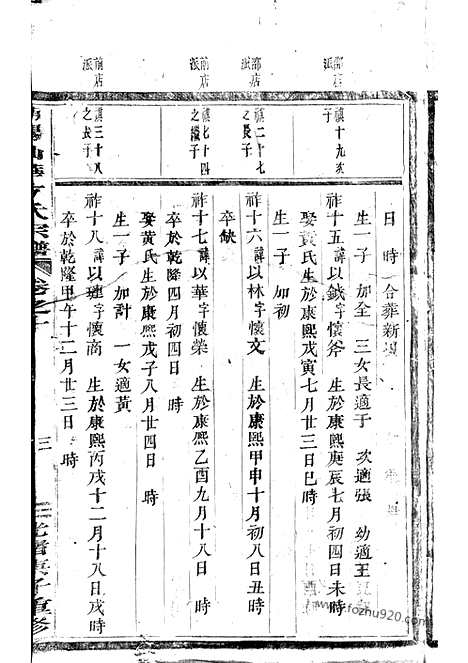 日 時 合葬新
生一子 加全 三女長適于 次適張 幼適王
祚十五 諱以鉞字懷斧 生於康熙庚辰七月初四日未時
娶黃氏生於康熙戊寅七月廿三日巳時
生一子 加初
祚十六 諱以林字懷文 生於康熙甲申十月初八日丑時
卒缺
祚十七 諱以華字懷榮 生於康熙乙酉九月十八日 時
卒於乾隆四月初四日 時
娶黃氏生於康熙戊子八月廿四日 時
生一子 加計 一女適黃
祚十八 諱以璉字懷商 生於康熙丙戌十二月十八日戌時
卒於乾隆甲午十二月廿三日 時
禛十九次
子
禛二十七
之長子
禛七十四
之繼子
禛三十八
之長子
派
派
前店
派
前店
派
氏宗譜
卷之
三
光緒庚子重修
www.fozhu920.com